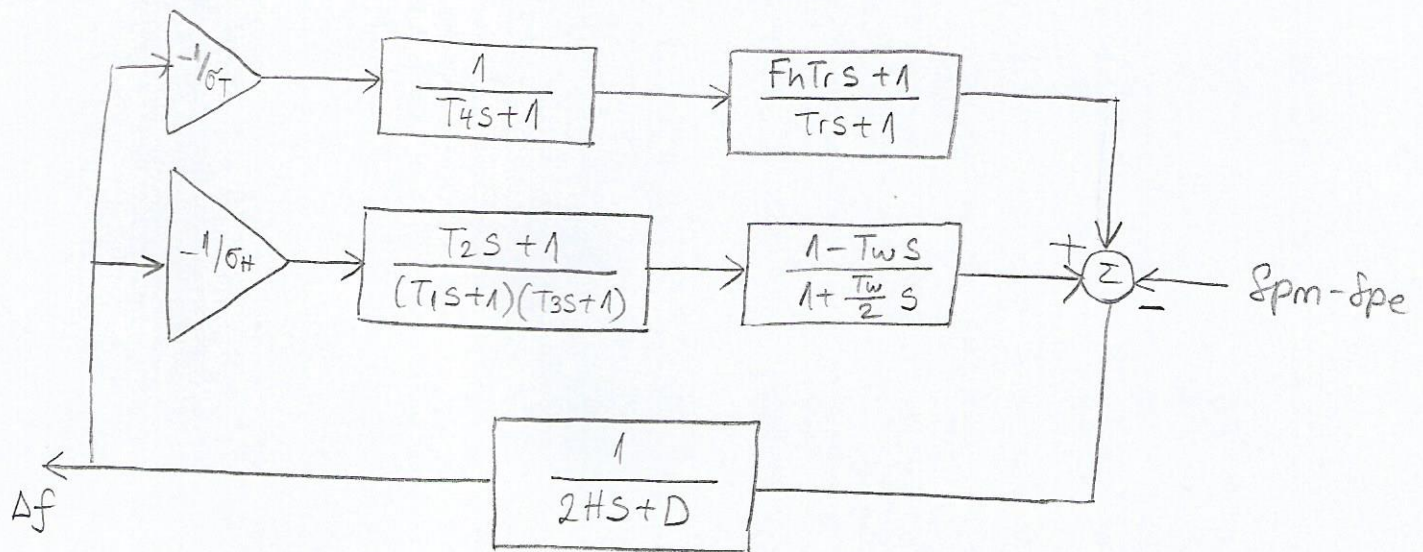 -1/σT
1
T4S+1
FhTrS+1
TrS+1
-1/σH
T2S+1
(T1S+1)(T3S+1)
1-TwS
1+Tw/2 S
+
Σ
-
δpm-δpe
1
2HS+D
Δf